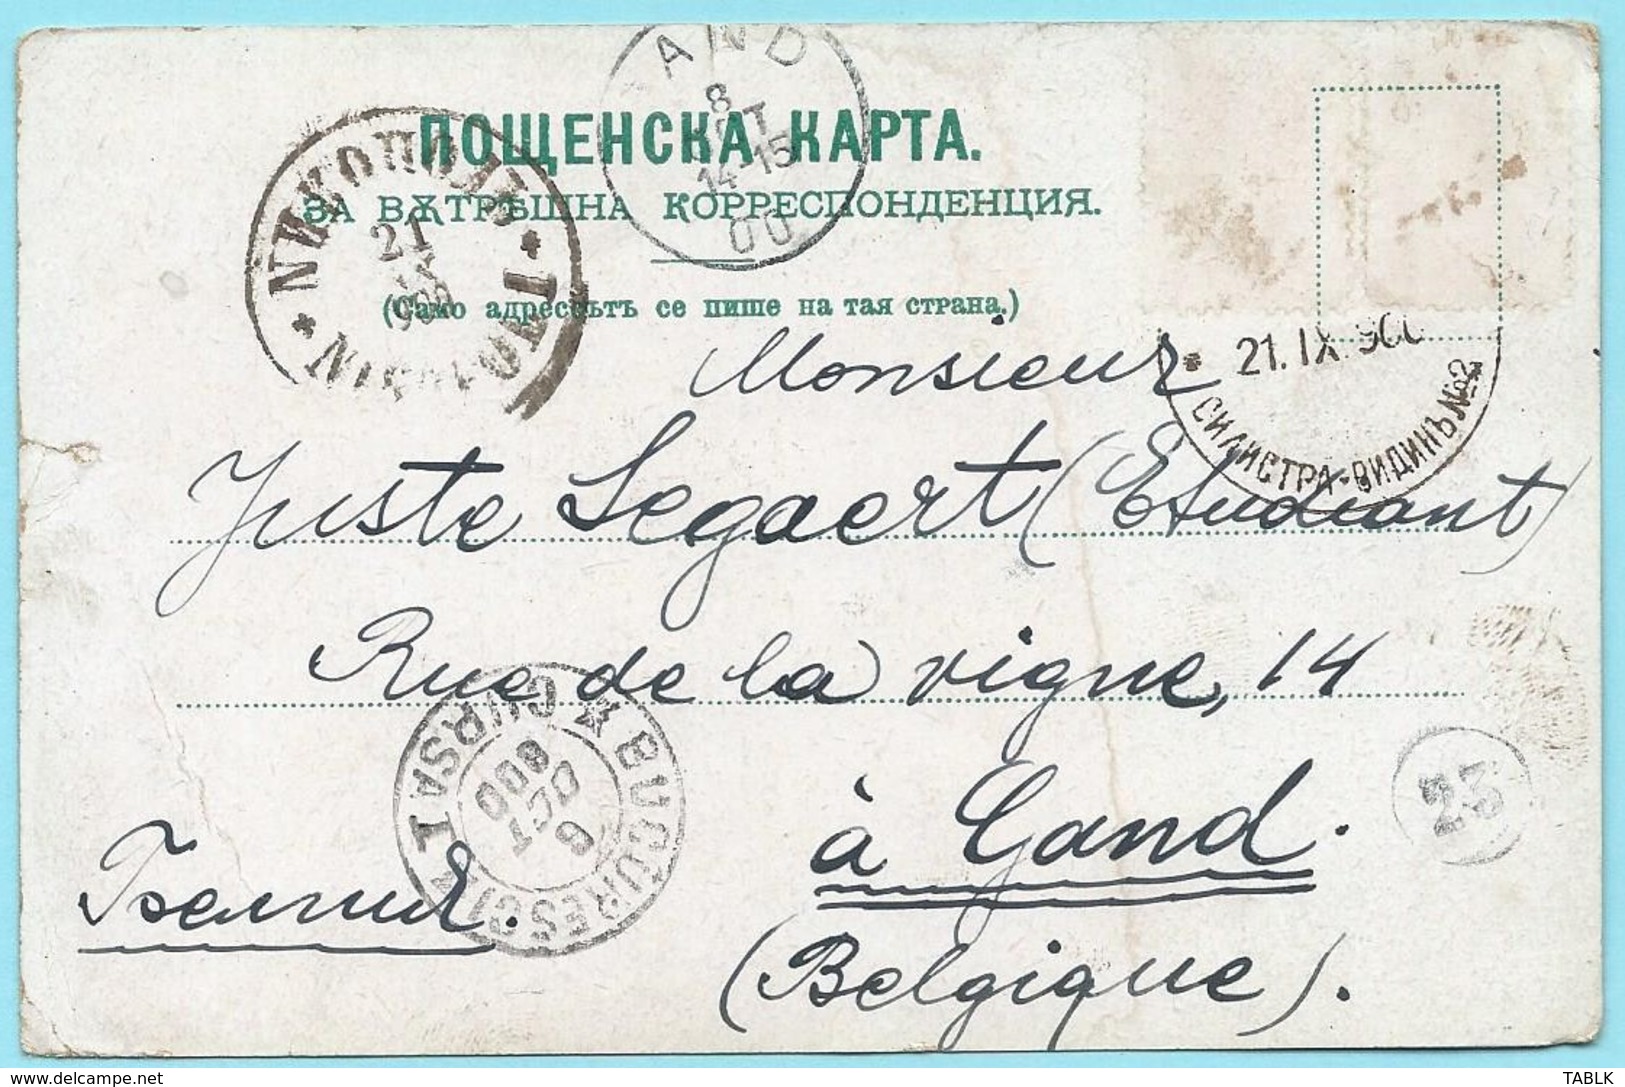 GAND
8
OCT
14-15
00
ПОЩЕНСКА КАРТА.
ЗА ВѪТРѢШНА КОРРЕСПОНДЕНЦИЯ.
(Само адресътъ се пише на тая страна.)
НИКОПОЛЪ
21
IX
900
NICOPOLI
* 21.IX.900
СИЛИСТРА-ВИДИНЪ №2
Monsieur
Juste Segaert (Etudiant)
Rue de la vigne, 14
à Gand.
(Belgique).
BUCURESCI
CURSA I
6
OCT
900
23
Белгия.
TABLK